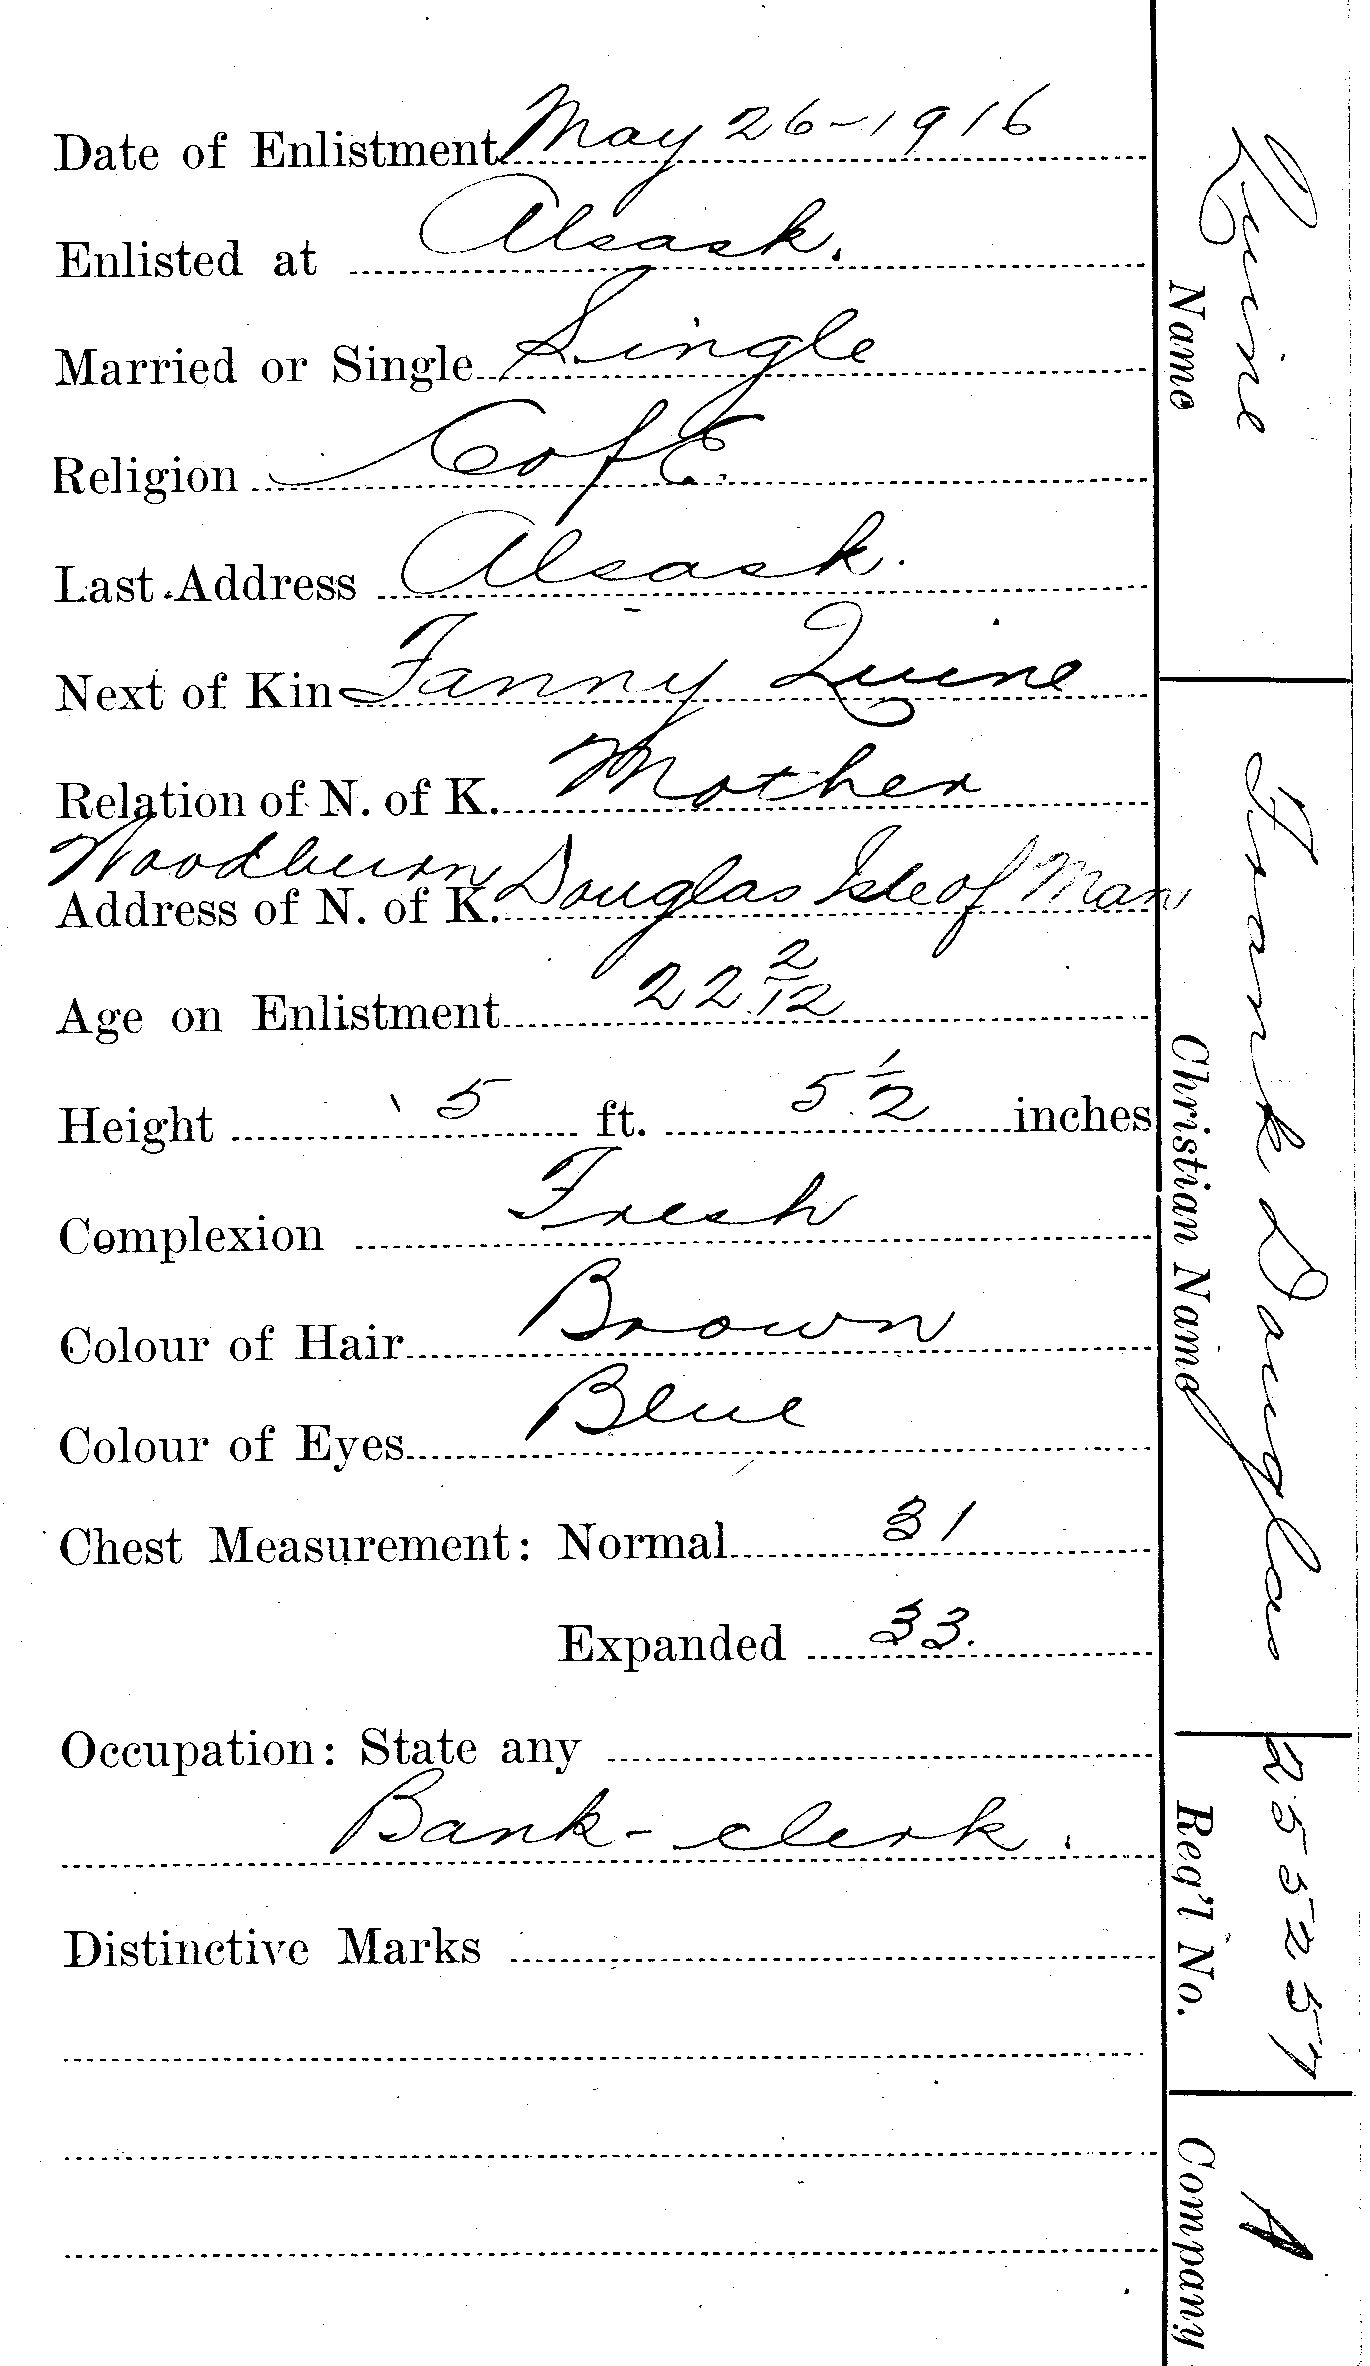 Date of Enlistment May 26-1916
Enlisted at Alsask.
Married or Single Single
Religion C of E.
Last Address Alsask.
Next of Kin Fanny Quine
Relation of N. of K. Mother
Woodburn
Address of N. of K. Douglas Isle of Man
Age on Enlistment 22 2/12
Height 5 ft. 5 1/2 inches
Complexion Fresh
Colour of Hair Brown
Colour of Eyes Blue
Chest Measurement: Normal 31
Expanded 33.
Occupation: State any
Bank-clerk.
Distinctive Marks
Quine
Name
Frank Douglas
Christian Name
255257
Reg'l No.
A
Company